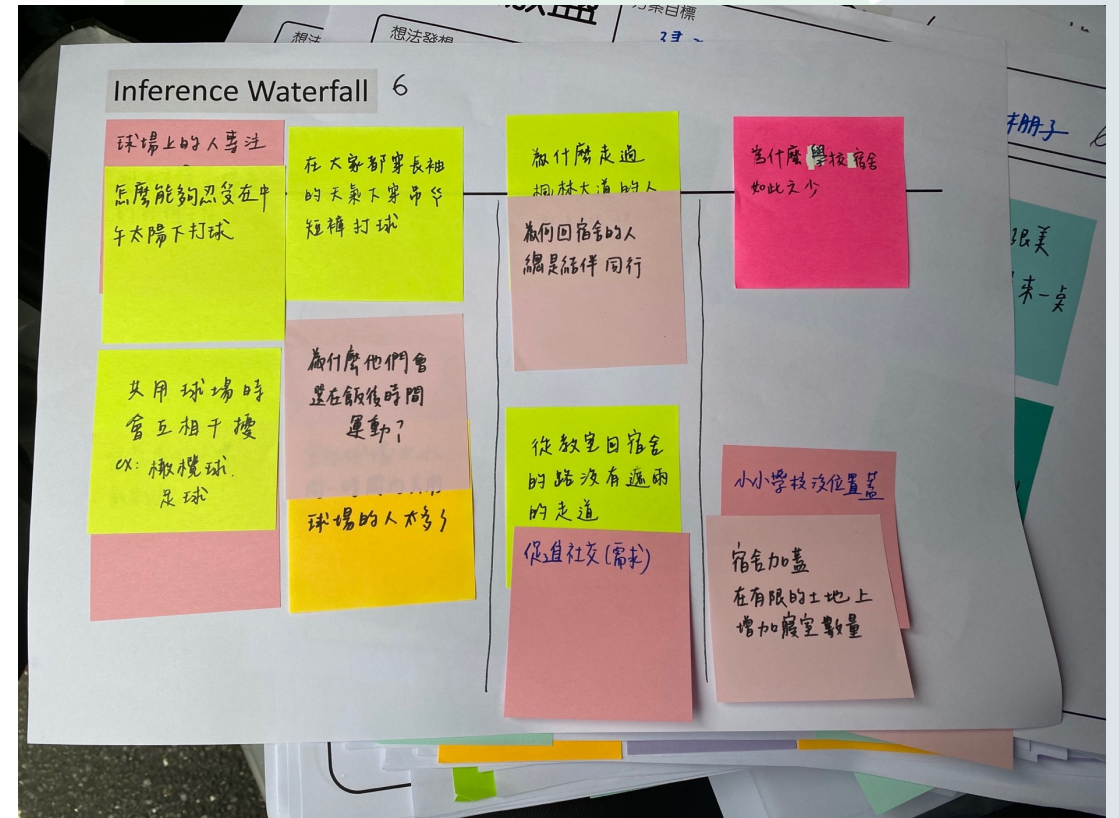 想法
想法發想
方案目標
Inference Waterfall 6
球場上的人專注
怎麼能夠忍受在中
午太陽下打球
在大家都穿長袖
的天氣下穿吊
短褲打球
為什麼走過
楓林大道的人
為何回宿舍的人
總是結伴同行
為什麼學校宿舍
如此之少
共用球場時
會互相干擾
ex: 橄欖球.
足球
為什麼他們會
選在飯後時間
運動?
球場的人太多
從教室回宿舍
的路沒有遮雨
的走道
促進社交(需求)
小小學校沒位置蓋
宿舍加蓋
在有限的土地上
增加寢室數量
很美
來一桌